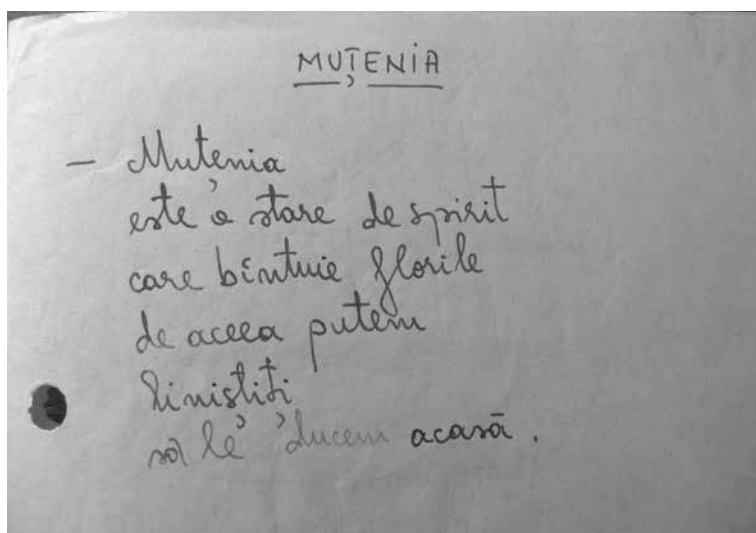 MUŢENIA
— Muţenia
este o stare de spirit
care bîntuie florile
de aceea putem
liniştiţi
să le ducem acasă.